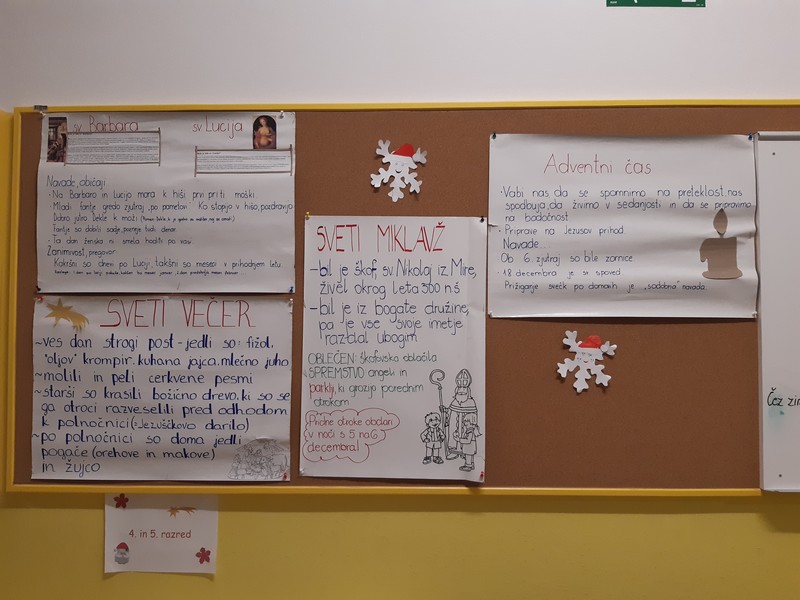 sv Barbara
sv Lucija
Navade, običaji
• Na Barbaro in Lucijo mora k hiši prvi priti moški.
• Mladi fantje gredo zjutraj „po pametvi“. Ko stopijo v hišo, pozdravijo
Dobro jutro
Fantje so dobili sadje, pozneje tudi denar
• Ta dan ženska ni smela hoditi po vasi
Zanimivost, pregovor:
Kakršni so dnevi po Luciji, takšni so meseci v prihodnjem letu
SVETI VEČER
~ves dan strogi post - jedli so: fižol,
"oljov" krompir, kuhana jajca, mlečno juho
~molili in peli cerkvene pesmi
~starši so krasili božično drevo, ki so se
ga otroci razveselili pred odhodom
k polnočnici (=Jezuščkovo darilo)
~po polnočnici so doma jedli
pogače (orehove in makove)
in žujco
SVETI MIKLAVŽ
-bil je škof, sv Nikolaj iz Mire,
živel okrog leta 300 n.š
-bil je iz bogate družine,
pa je vse svoje imetje
razdal ubogim
OBLEČEN: škofovska oblačila
SPREMSTVO: angeli in
parklji, ki grozijo porednim
otrokom
Pridne otroke obdari
v noči s 5 na 6
decembra!
Adventni čas
• Vabi nas da se spomnimo na preteklost, nas
spodbuja, da živimo v sedanjosti in da se pripravimo
na bodočnost
• Priprave na Jezusov prihod
Navade...
Ob 6. zjutraj so bile zornice
• 18 decembra je sv. spoved.
Prižiganje svečk po domovih je „sodobna“ navada.
Čez zim
4. in 5. razred